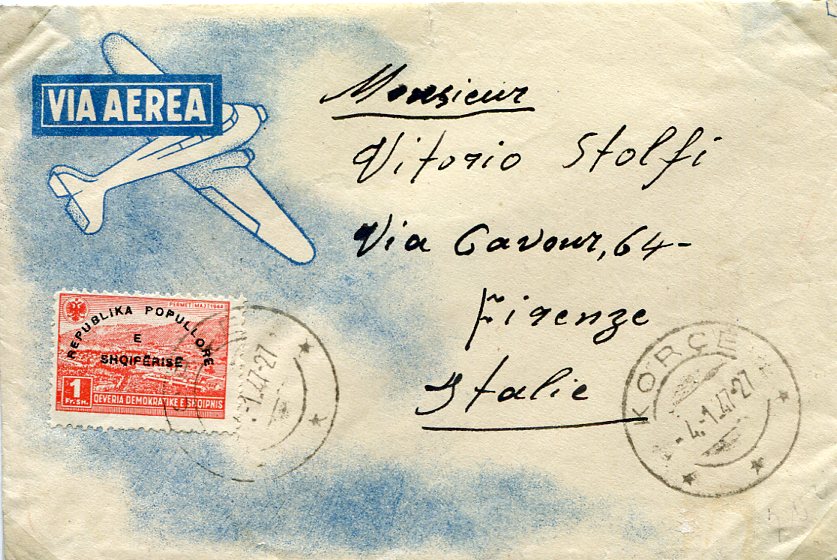 VIA AEREA
Monsieur
Vitorio Stolfi
Via Cavour, 64-
Firenze
Italie
PERMET-MAJ 1944
REPUBLIKA POPULLORE
E
SHQIPËRISË
1
Fr. SH.
QEVERIA DEMOKRATIKE E SHQIPNIS
-1.47-27
KORÇE
-4.-1.47-27